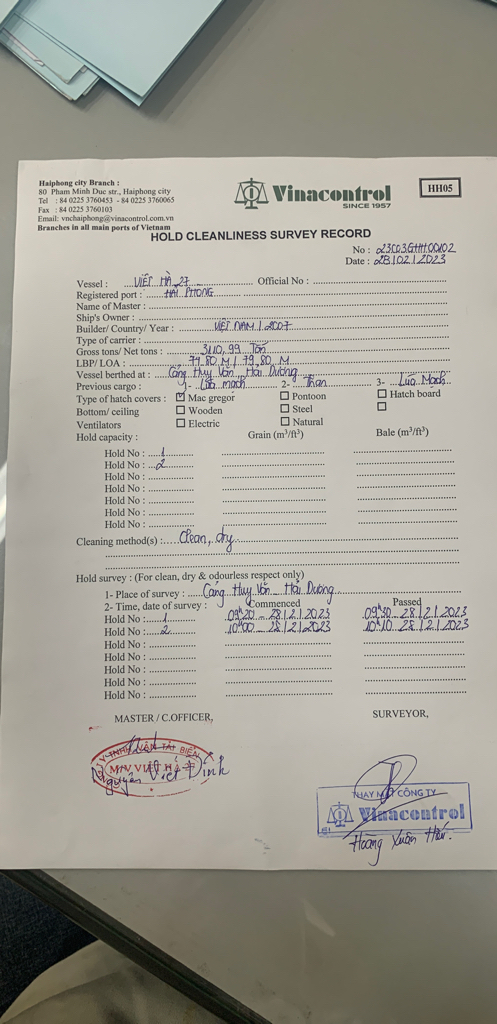 Haiphong city Branch :
80 Pham Minh Duc str., Haiphong city
Tel : 84 0225 3760453 - 84 0225 3760065
Fax : 84 0225 3760103
Email: vnchaiphong@vinacontrol.com.vn
Branches in all main ports of Vietnam
Vinacontrol
SINCE 1957
HH05
HOLD CLEANLINESS SURVEY RECORD
No : 23C03GHH00102
Date : 28/02/2023
Vessel : VIỆT HÀ 27 Official No :
Registered port : HẢI PHÒNG
Name of Master :
Ship's Owner :
Builder/ Country/ Year : VIỆT NAM / 2007
Type of carrier :
Gross tons/ Net tons : 3110,99 Tấn
LBP/ LOA : 79.80 M / 79,80 M
Vessel berthed at : Cảng Huy Văn - Hải Dương
Previous cargo : 1- Lúa mạch 2- Than 3- Lúa Mạch
Type of hatch covers : Mac gregor Pontoon Hatch board
Bottom/ ceiling Wooden Steel
Ventilators Electric Natural
Hold capacity : Grain (m³/ft³) Bale (m³/ft³)
Hold No : 1
Hold No : 2
Hold No :
Hold No :
Hold No :
Hold No :
Hold No :
Cleaning method(s) : Clean, dry
Hold survey : (For clean, dry & odourless respect only)
1- Place of survey : Cảng Huy Văn - Hải Dương
2- Time, date of survey : Commenced Passed
Hold No : 1 09h20 - 28/2/2023 09h30 - 28/2/2023
Hold No : 2 10h00 - 28/2/2023 10h10 - 28/2/2023
Hold No :
Hold No :
Hold No :
Hold No :
Hold No :
MASTER / C.OFFICER, SURVEYOR,
TNHH VẬN TẢI BIỂN
M/V VIỆT HÀ
Nguyễn Việt Dinh
THAY MẶT CÔNG TY
Vinacontrol
Hoàng Xuân